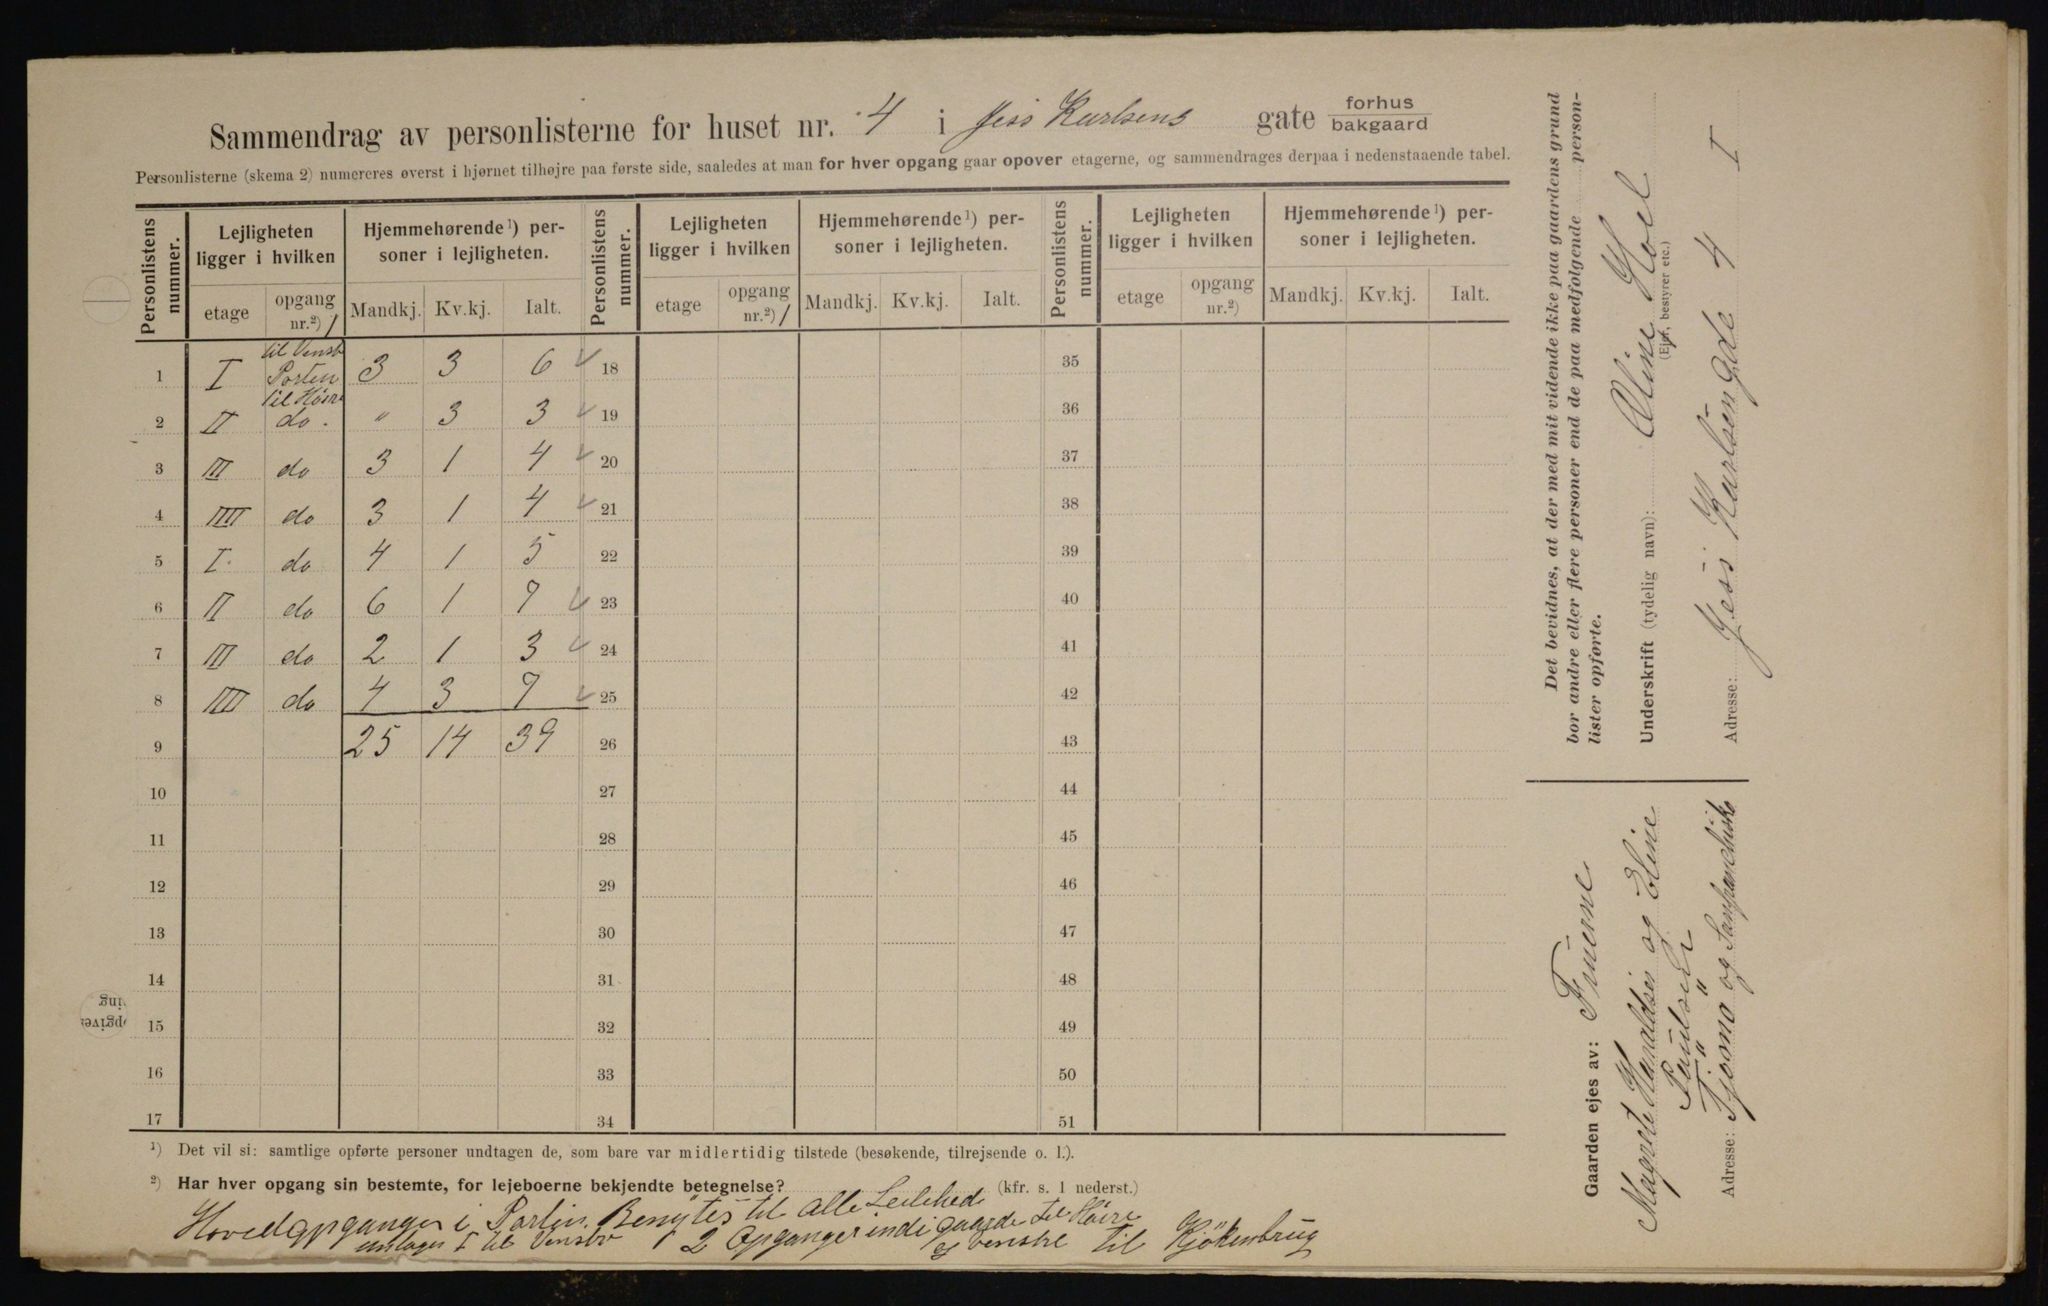 Sammendrag av personlisterne for huset nr. 4 i Jess Karlsens gate forhus bakgaard
Personlisterne (skema 2) numereres øverst i hjørnet tilhøjre paa første side, saaledes at man for hver opgang gaar opover etagerne, og sammendrages derpaa i nedenstaaende tabel.
Personlistens nummer. Lejligheten ligger i hvilken Hjemmehørende¹) personer i lejligheten. Personlistens nummer. Lejligheten ligger i hvilken Hjemmehørende¹) personer i lejligheten. Personlistens nummer. Lejligheten ligger i hvilken Hjemmehørende¹) personer i lejligheten.
etage opgang nr.²) 1 Mandkj. Kv.kj. Ialt. etage opgang nr.²) 1 Mandkj. Kv.kj. Ialt. etage opgang nr.²) Mandkj. Kv.kj. Ialt.
til Vensb
1 I Porten 3 3 6 18 35
til Höire
2 II do. " 3 3 19 36
3 III do 3 1 4 20 37
4 IIII do 3 1 4 21 38
5 I. do 4 1 5 22 39
6 II do 6 1 7 23 40
7 III do 2 1 3 24 41
8 IIII do 4 3 7 25 42
9 25 14 39 26 43
10 27 44
11 28 45
12 29 46
13 30 47
14 31 48
15 32 49
16 33 50
17 34 51
¹) Det vil si: samtlige opførte personer undtagen de, som bare var midlertidig tilstede (besøkende, tilrejsende o. l.).
²) Har hver opgang sin bestemte, for lejeboerne bekjendte betegnelse? (kfr. s. 1 nederst.)
Hovedopganger i Porten. Benytes til alle Leilihed
I til Vensbv 2 Opganger indi gaarde til Höire
Venstre til Kjökenbrug
Det bevidnes, at der med mit vidende ikke paa gaardens grund
bor andre eller flere personer end de paa medfølgende person-
lister opførte.
Underskrift (tydelig navn): Aline Hoel
(Ejer, bestyrer etc.)
Adresse: Jess Karlsen Gde 4 I
Gaarden ejes av: Fruerne
Magrete Haraldsen og Eline
Paulsen
Adresse: Tjömö og Sanfranchisko